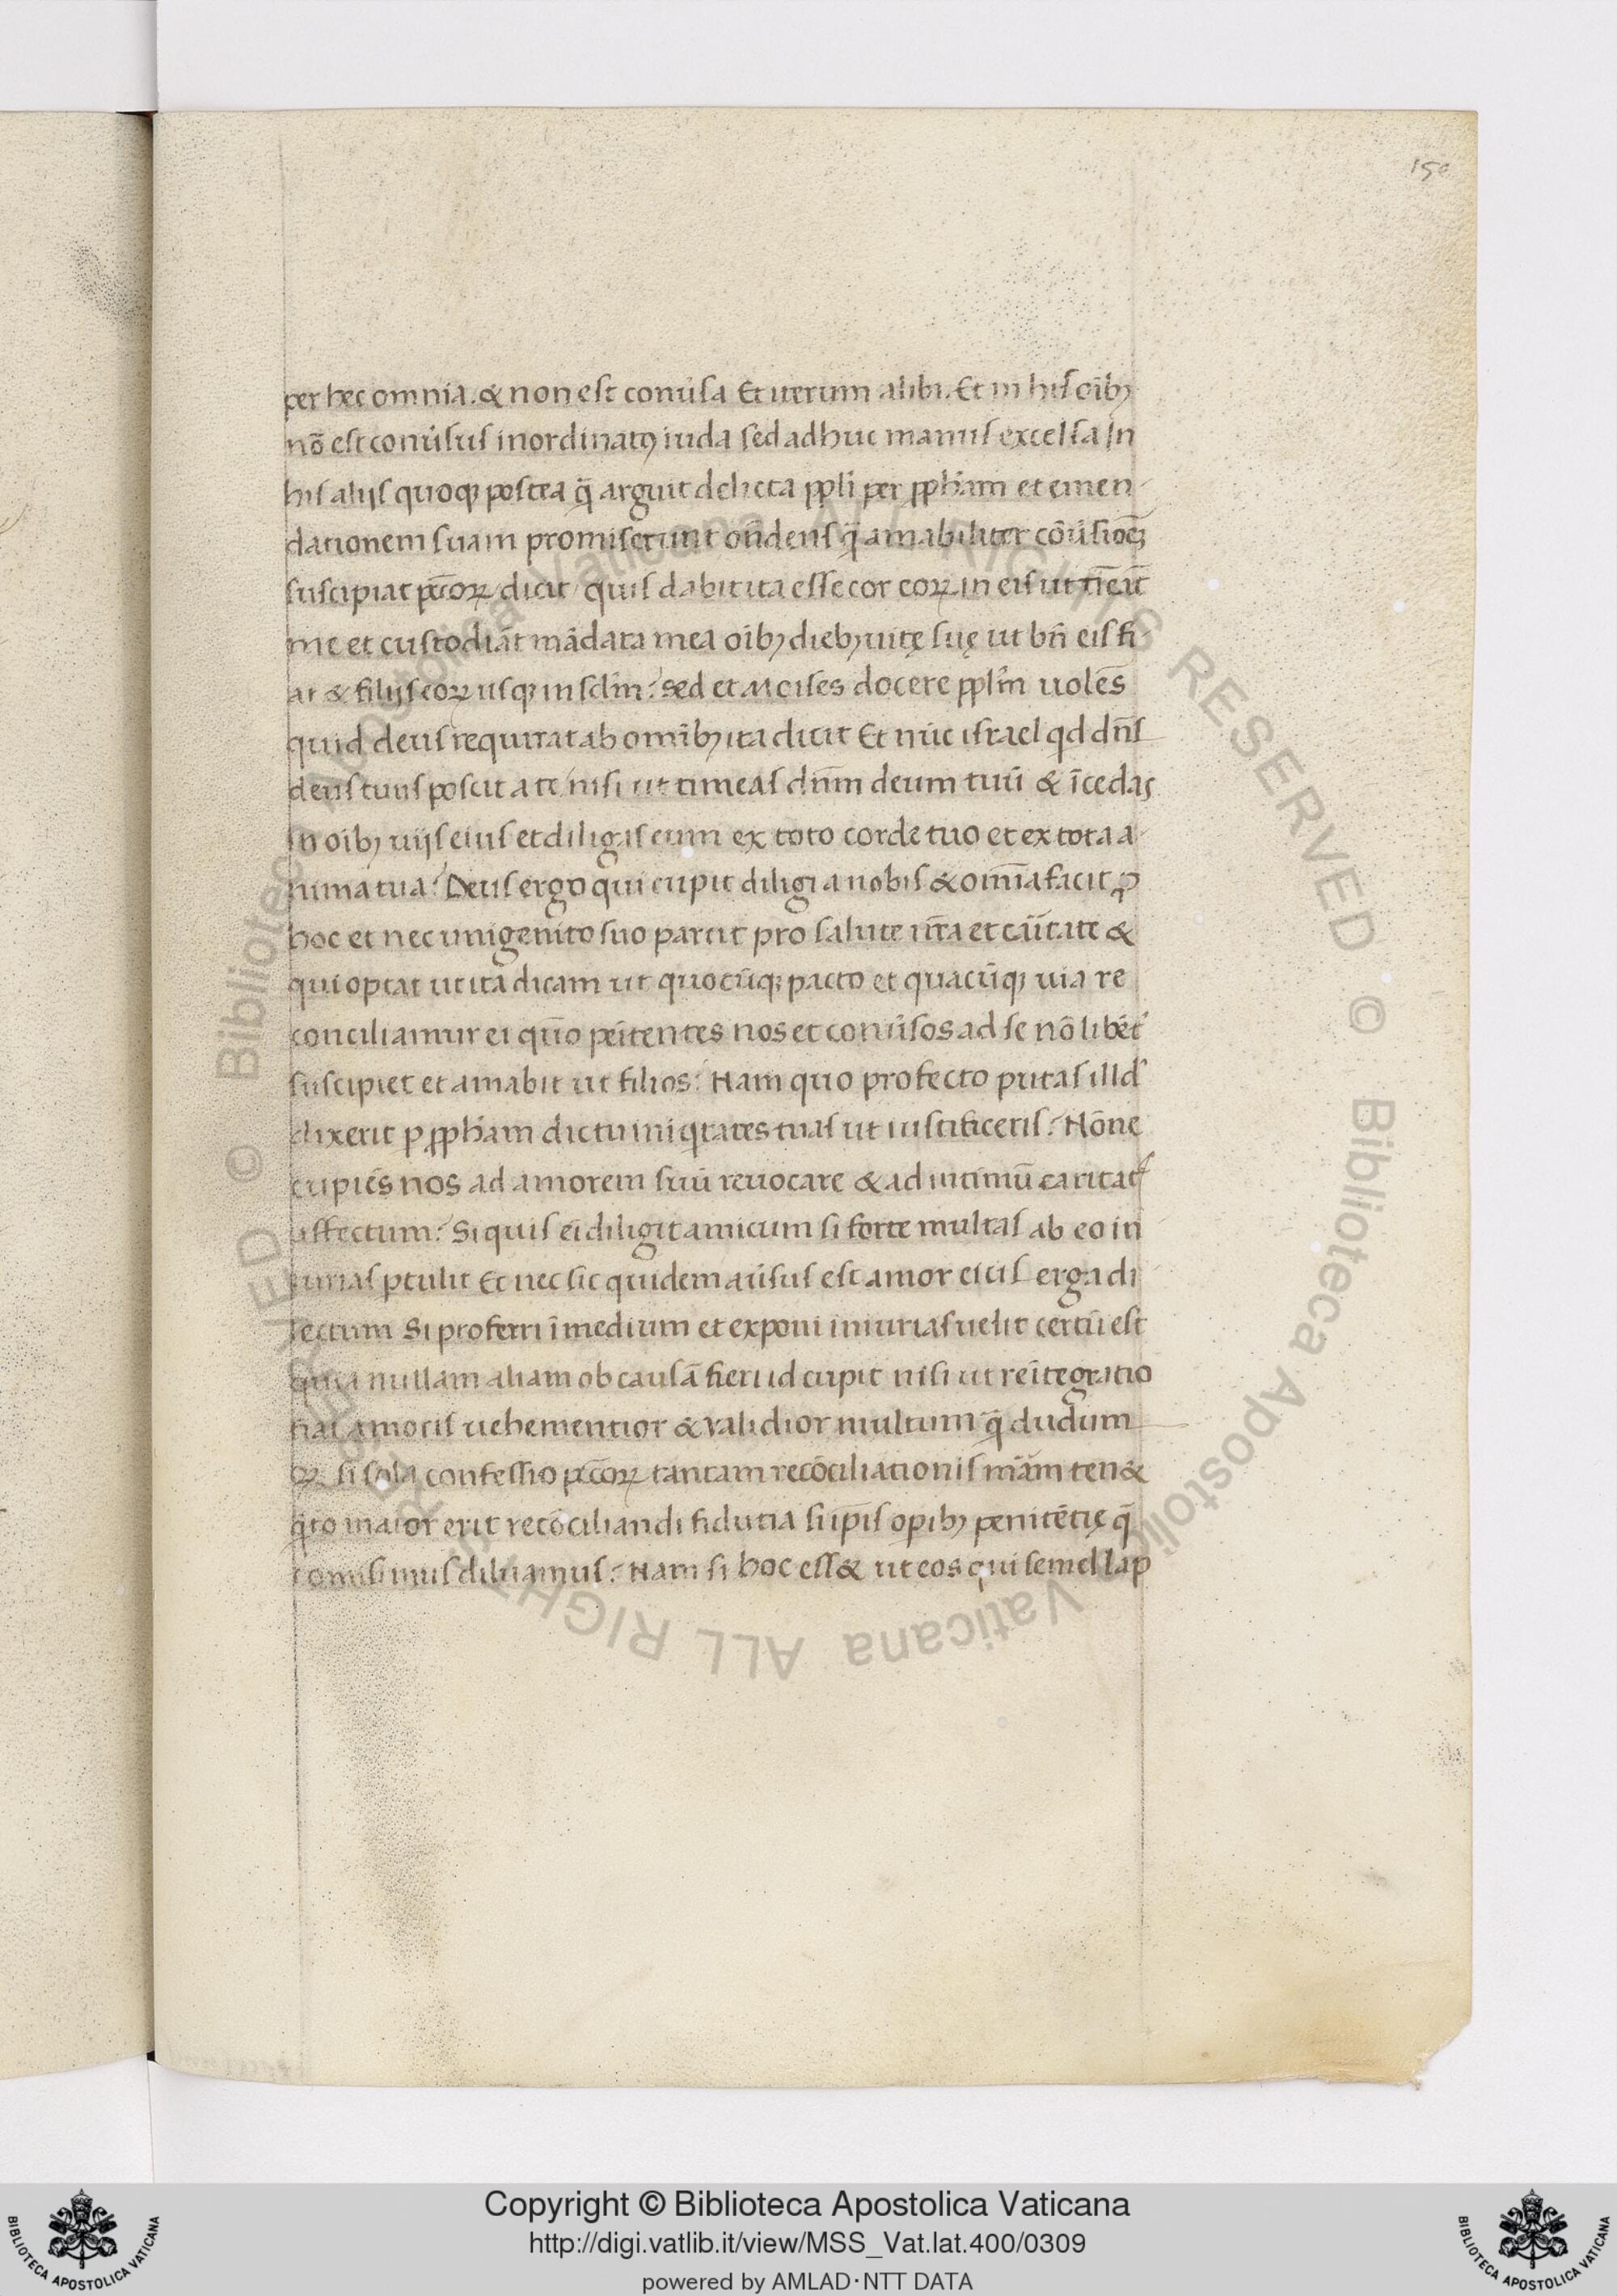 150
per hec omnia. & non est conũsa Et iterum alibi. Et in his oĩbꝫ
nõ est conũsus inordinatꝰ iuda sed adhuc manus excelsa In
his alijs quoqꝫ postea q̃ arguit delicta ppl̃i per pph̃am et emen-
dationem suam promiserunt oñdens q̃ amabiliter cõũsioẽꝫ
suscipiat pc̃coꝝ dicit / quis dabit ita esse cor eoꝝ in eis ut tĩeãt
me et custodiãt mãdata mea oĩbꝫ diebꝫ uitę suę ut bñ eis fi-
at & filijs eoꝝ usqꝫ in sc̃lm̃? sed et Moises docere ppl̃m uolẽs
quid deus requirat ab omĩbꝫ ita dicit Et nũc israel qd dñs
deus tuus poscit a te / nisi ut timeas dñm deum tuũ & ĩcedas
in oĩbꝫ uijs eius et diligas eum ex toto corde tuo et ex tota a-
nima tua? Deus ergo qui cupit diligi a nobis & omĩa facit ꝓ
hoc et nec unigenito suo parcit pro salute nr̃a et cãĩtate &
qui optat ut ita dicam ut quocũqꝫ pacto et quacũqꝫ uia re
conciliamur ei quõ peĩtentes nos et conũsos ad se nõ libẽt᷑
suscipiet et amabit ut filios? Nam quo profecto putas illd᷑
dixerit p pph̃am dic tu iniq̃tates tuas ut iustificeris? Nõne
cupiẽs nos ad amorem suũ reuocare & ad intimũ caritat᷑
affectum? Si quis eĩ diligit amicum si forte multas ab eo in
iurias ptulit Et nec sic quidem aũsus est amor eius erga di
lectum Si proferri ĩ medium et exponi iniurias uelit certũ est
quia nullam aliam ob causã fieri id cupit nisi ut reĩtegratio
fiat amoris uehementior & validior multum q̃ dudum
qꝫ si sola confessio pc̃coꝝ tantam recõciliationis mãm ten&
q̃to maior erit recõciliandi fidutia si ip̃is opibꝫ penitẽtię q̃
comisimus diluamus? Nam si hoc ess& ut eos qui semel lap
Copyright © Biblioteca Apostolica Vaticana
http://digi.vatlib.it/view/MSS_Vat.lat.400/0309
powered by AMLAD·NTT DATA
BIBLIOTECA APOSTOLICA VATICANA
BIBLIOTECA APOSTOLICA VATICANA
© Biblioteca Apostolica Vaticana ALL RIGHTS RESERVED © Biblioteca Apostolica Vaticana ALL RIGHTS RESERVED